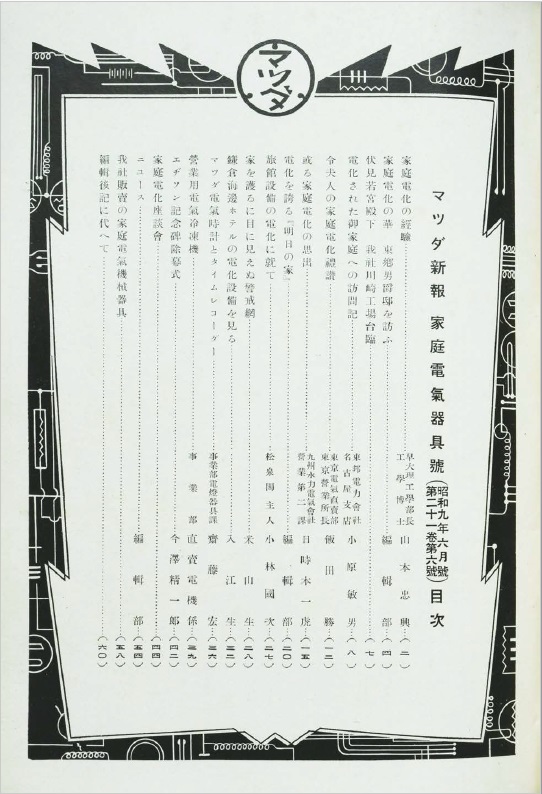 マツダ
マツダ新報 家庭電氣器具號 (昭和九年六月號 第二十一卷第六號) 目次
家庭電化の經驗 早大理工學部長 工學博士 山本忠興 (二)
家庭電化の華 東鄕男爵邸を訪ふ 編輯部 (四)
伏見若宮殿下 我社川崎工場台臨 (七)
電化された御家庭への訪問記 東邦電力會社 名古屋支店 小原敏男 (八)
令夫人の家庭電化禮讃 東京電氣直賣部 東京營業所長 飯田勝 (一二)
或る家庭電化の思出 九州水力電氣會社 營業第二課 日時本一虎 (一五)
電化を誇る『明日の家』 編輯部 (二〇)
旅館設備の電化に就て 松泉閣主人 小林國次 (二七)
家を護るに目に見えぬ警戒網 米山生 (二八)
鎌倉海邊ホテルの電化設備を見る 入江生 (三二)
マツダ電氣時計とタイムレコーダー 事業部電燈器具課 齋藤宏 (三六)
營業用電氣冷凍機 事業部 直賣電機係 (三九)
エヂソン記念碑除幕式 今澤精一郎 (四二)
家庭電化座談會 (四四)
ニュース 編輯部 (五四)
我社販賣の家庭電氣機械器具 (五八)
編輯後記に代へて (六〇)